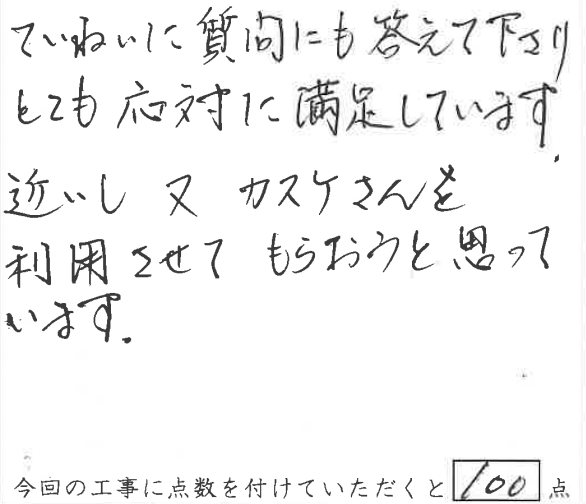 ていねいに質問にも答えて下さり
とても応対に満足しています.
近いし 又 カスケさんを
利用させて もらおうと思って
います.
今回の工事に点数を付けていただくと 100 点